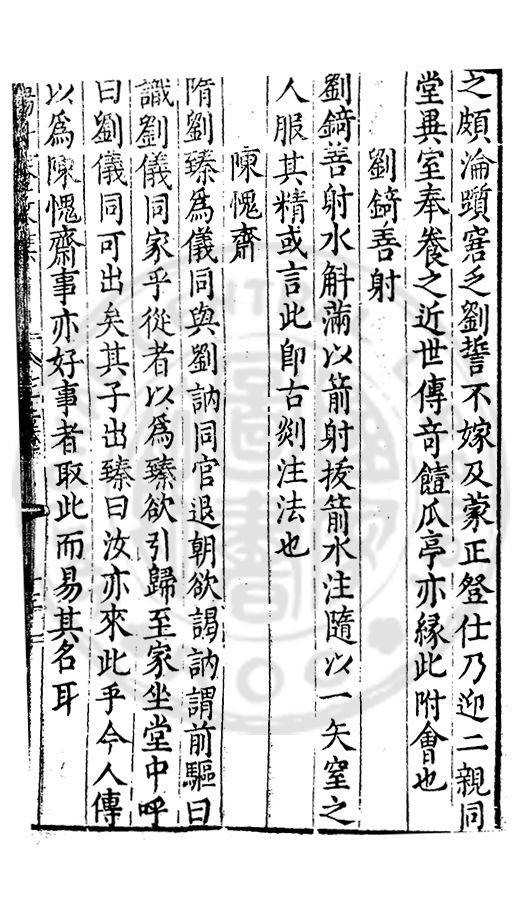 之頗淪躓窘乏劉誓不嫁及蒙正登仕乃迎二親同
堂異室奉養之近世傳竒饐瓜亭亦縁此附㑹也
劉錡善射
劉錡善射水斛滿以箭射拔箭水注隨以一矢窒之
人服其精或言此卽古剡注法也
陳愧齋
隋劉臻爲儀同與劉訥同官退朝欲謁訥謂前驅曰
識劉儀同家乎從者以爲臻欲引歸至家坐堂中呼
曰劉儀同可出矣其子出臻曰汝亦來此乎今人傳
以爲陳愧齋事亦好事者取此而易其名耳